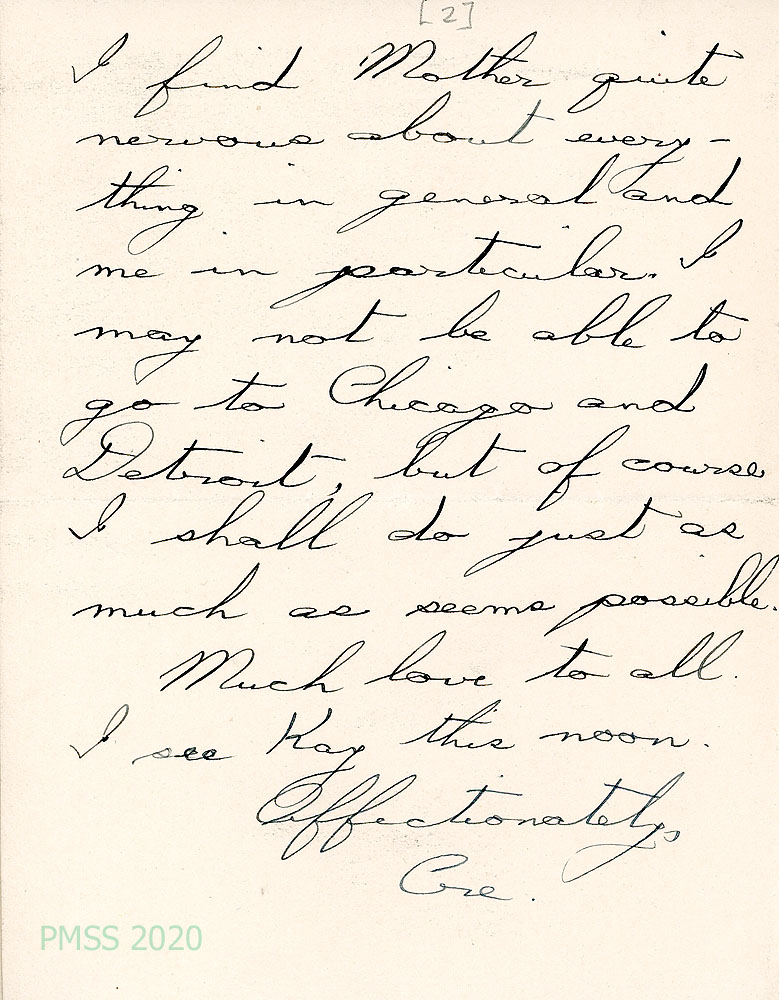 [2]
I find Mother quite
nervous about every-
thing in general and
me in particular. I
may not be able to
go to Chicago and
Detroit, but of course
I shall do just as
much as seems possible.
Much love to all.
I see Kay this noon.
Affectionately,
PMSS 2020